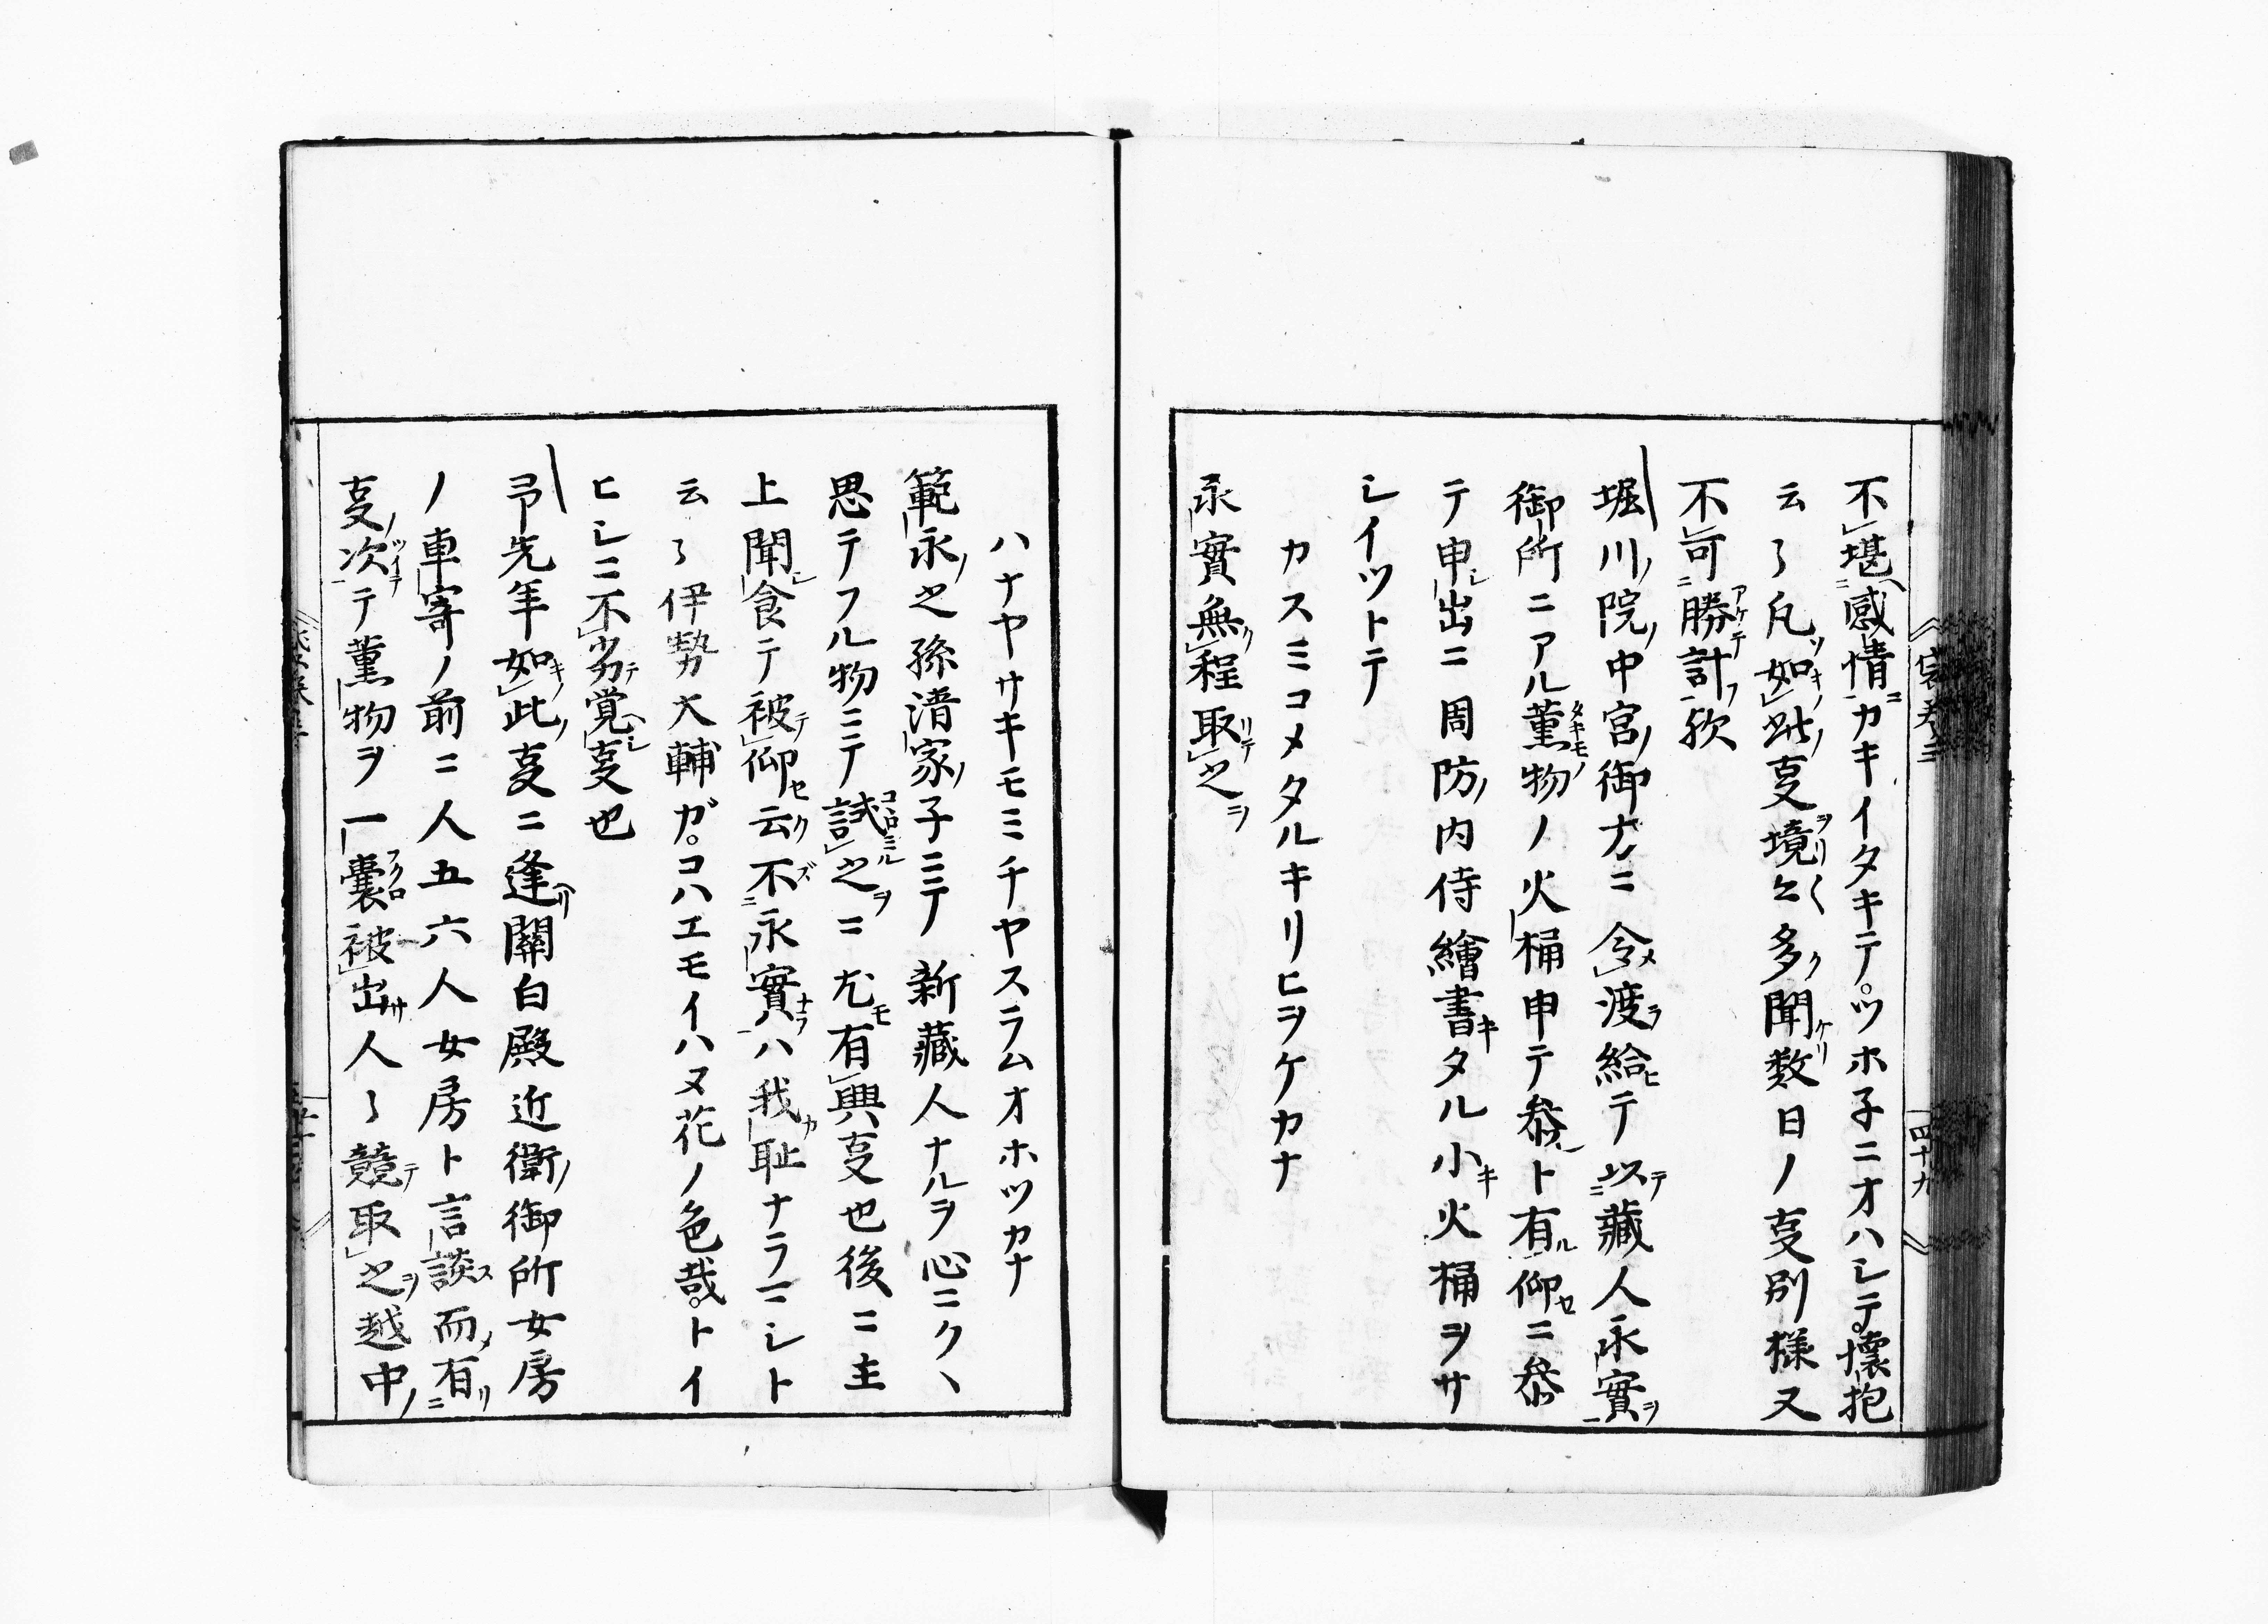 不堪感情カキイタキテ。ツホ子ニオハシテ。懐抱
云々凡如此叓境ニ多聞数日ノ叓別様又
不可勝計歟
堀川院中宮御方ニ令渡給テ以蔵人永實
御所ニアル薫物ノ火桶申テ叅ト有仰ニ叅
テ申出ニ周防内侍繪書タル小火桶ヲサ
シイツトテ
カスミコメタルキリヒヲケカナ
永實無程取之
ハナヤサキモミチヤスラムオホツカナ
範永之孫清家子ニテ新藏人ナルヲ心ニクヽ
思テフル物ニテ試之ニ尤有興叓也後ニ主
上聞食テ被仰云不永實ハ我耻ナラマシト
云々伊勢大輔ガ。コハエモイハヌ花ノ色哉。トイ
ヒシニ不劣覚叓也
予先年如此叓ニ逢關白殿近衛御所女房
ノ車寄ノ前ニ人五六人女房ト言談而有
叓次テ薫物ヲ一嚢被出人々競取之越中
袋巻三
四十九